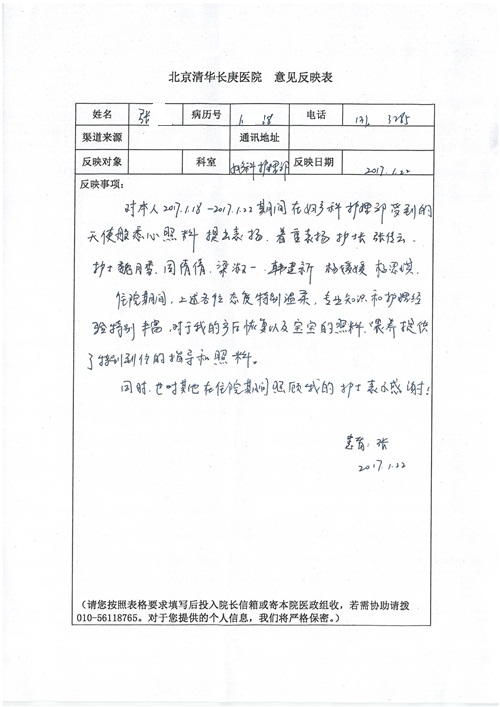 北京清华长庚医院 意见反映表
姓名 张 病历号 1. 18 电话 131, 3285
渠道来源 通讯地址
反映对象 科室 妇产科护理部 反映日期 2017.1.22
反映事项：
对本人2017.1.18-2017.1.22期间在妇产科护理部受到的
天使般悉心照料提出表扬，着重表扬护士长
护士 周倩倩、梁淑一、韩建新
住院期间，上述各位态度特别温柔，专业知识和护理经
验特别丰富，对于我的产后恢复以及宝宝的照料、喂养提供
了特别到位的指导和照料。
同时，也对其他在住院期间照顾我的护士表示感谢！
患者：张
2017.1.22
（请您按照表格要求填写后投入院长信箱或寄本院医政组收，若需协助请拨
010-56118765。对于您提供的个人信息，我们将严格保密。）